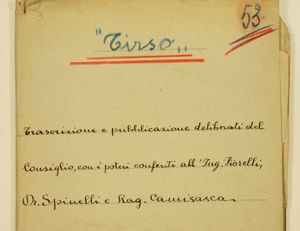 3
53
"Tirso"
Trascrizione e pubblicazione deliberati del
Consiglio, con i poteri conferiti all'Ing. Fiorelli,
Dr. Spinelli e Rag. Camisasca.